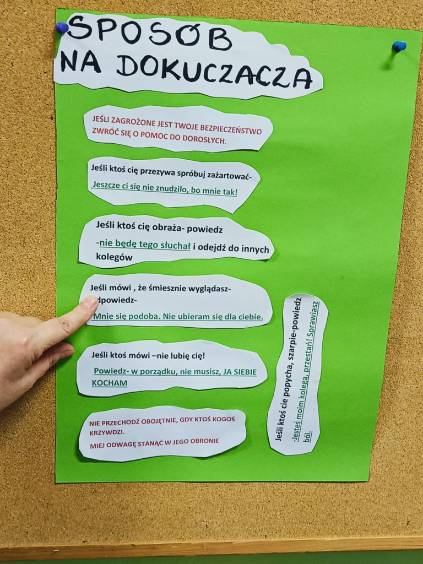 SPOSÓB
NA DOKUCZACZA
JEŚLI ZAGROŻONE JEST TWOJE BEZPIECZEŃSTWO
ZWRÓĆ SIĘ O POMOC DO DOROSŁYCH.
Jeśli ktoś cię przezywa spróbuj zażartować-
Jeszcze ci się nie znudziło, bo mnie tak!
Jeśli ktoś cię obraża- powiedz
-nie będę tego słuchał i odejdź do innych
kolegów
Jeśli mówi , że śmiesznie wyglądasz-
dpowiedz-
Mnie się podoba. Nie ubieram się dla ciebie.
Jeśli ktoś mówi –nie lubię cię!
Powiedz- w porządku, nie musisz, JA SIEBIE
KOCHAM
NIE PRZECHODŹ OBOJĘTNIE, GDY KTOŚ KOGOŚ
KRZYWDZI.
MIEJ ODWAGĘ STANĄĆ W JEGO OBRONIE
Jeśli ktoś cię popycha, szarpie-powiedz
-Jesteś moim kolegą, przestań! Sprawiasz
ból.